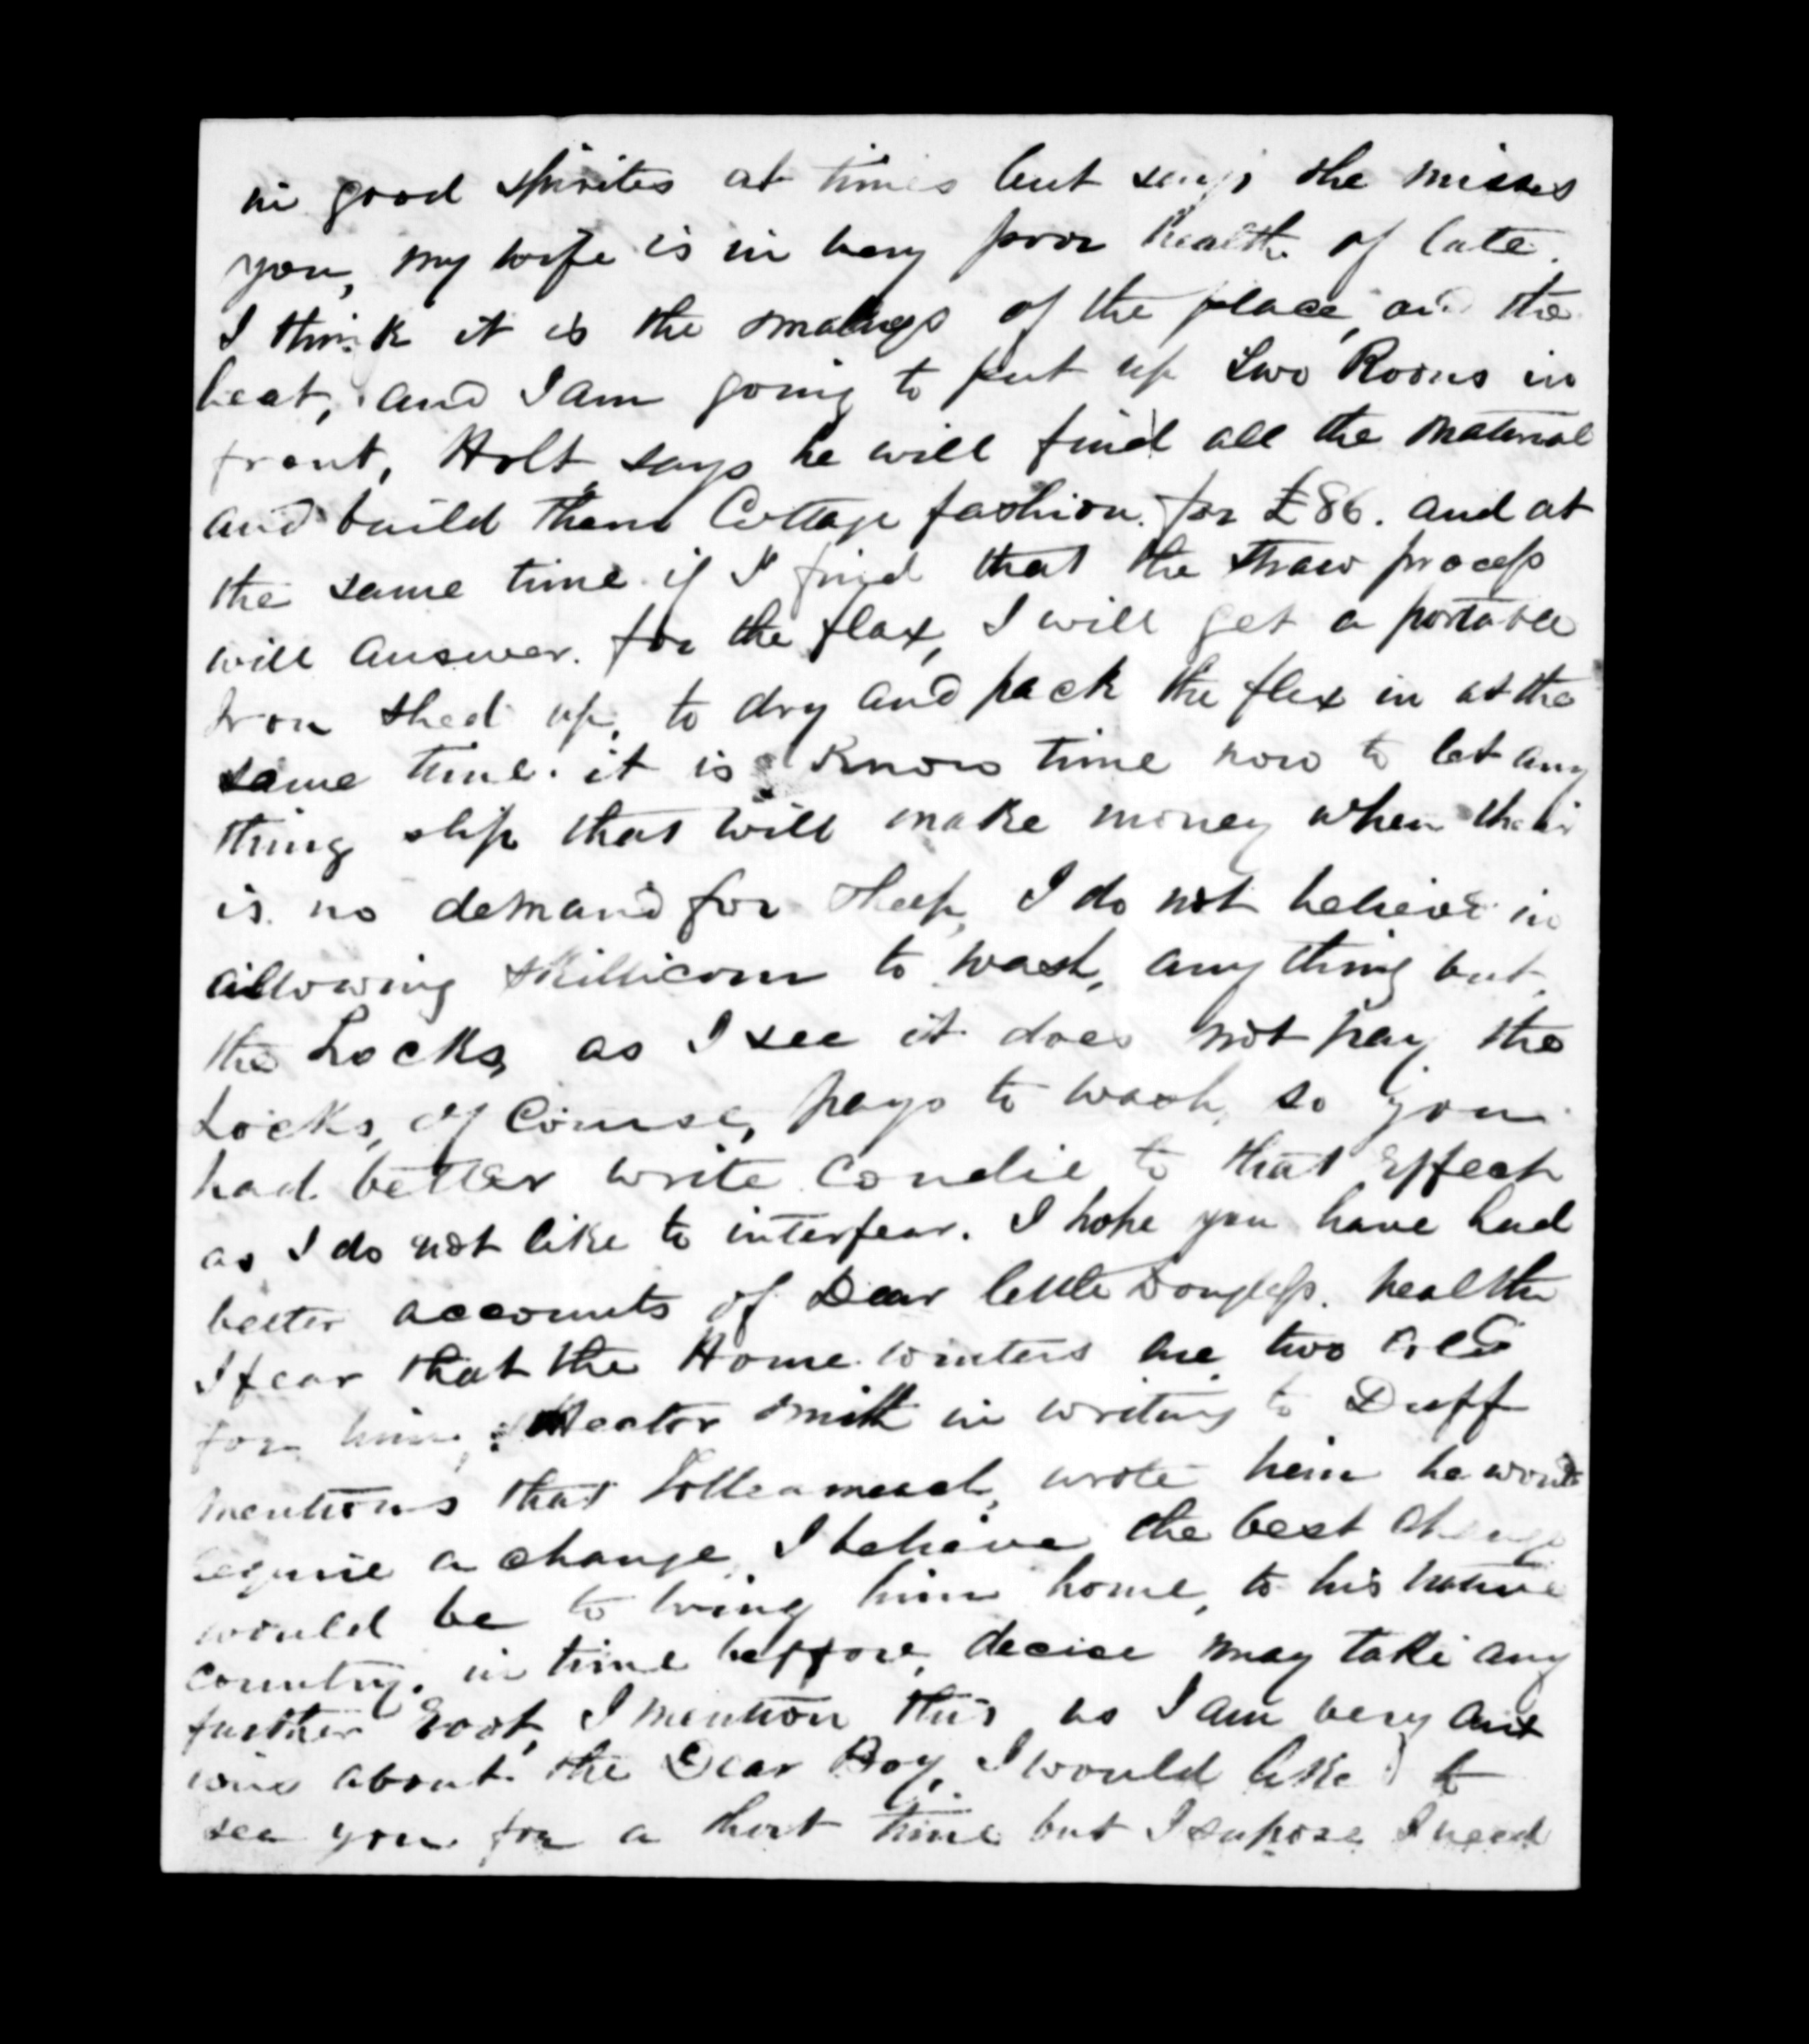 in good spirites at times but says she misses
you, my wife is in very poor health of late.
I think it is the smallness of the place, and the
heat, and I am going to put up two Rooms in
front, Holt says he will find all the material
and build them Cottage fashion. for £86. and at
the same time if I find that the Straw process
will answer. for the flax, I will get a portable
Iron shed up, to dry and pack the flax in at the
same time. it is know time now to let any
thing slip that will make money when their
is no demand for sheep, I do not believe in
allowing Skillicorn to wash, any thing but,
the Locks, as I see it does not pay the
Locks, of Course, pays to wash, so you
had better write Condie to that Effect
as I do not like to interfear. I hope you have had
better accounts of Dear little Douglass. health
I fear that the Home winters are two cold
for him, Heator Smith in writing to Duff
mentions that wrote him he would
require a change, I believe the best change
would be to bring him home, to his native
country. in time beffore, decise may take any
further Root, I mention this as I am very anx
ious about the Dear Boy, I would like to
see you for a short time but I supose I need